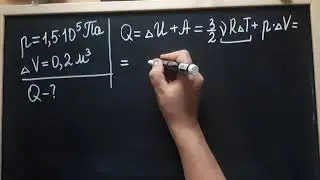 p = 1,5·10⁵ Па
ΔV = 0,2 м³
Q – ?
Q = ΔU + A = 3/2 νRΔT + p·ΔV =
=